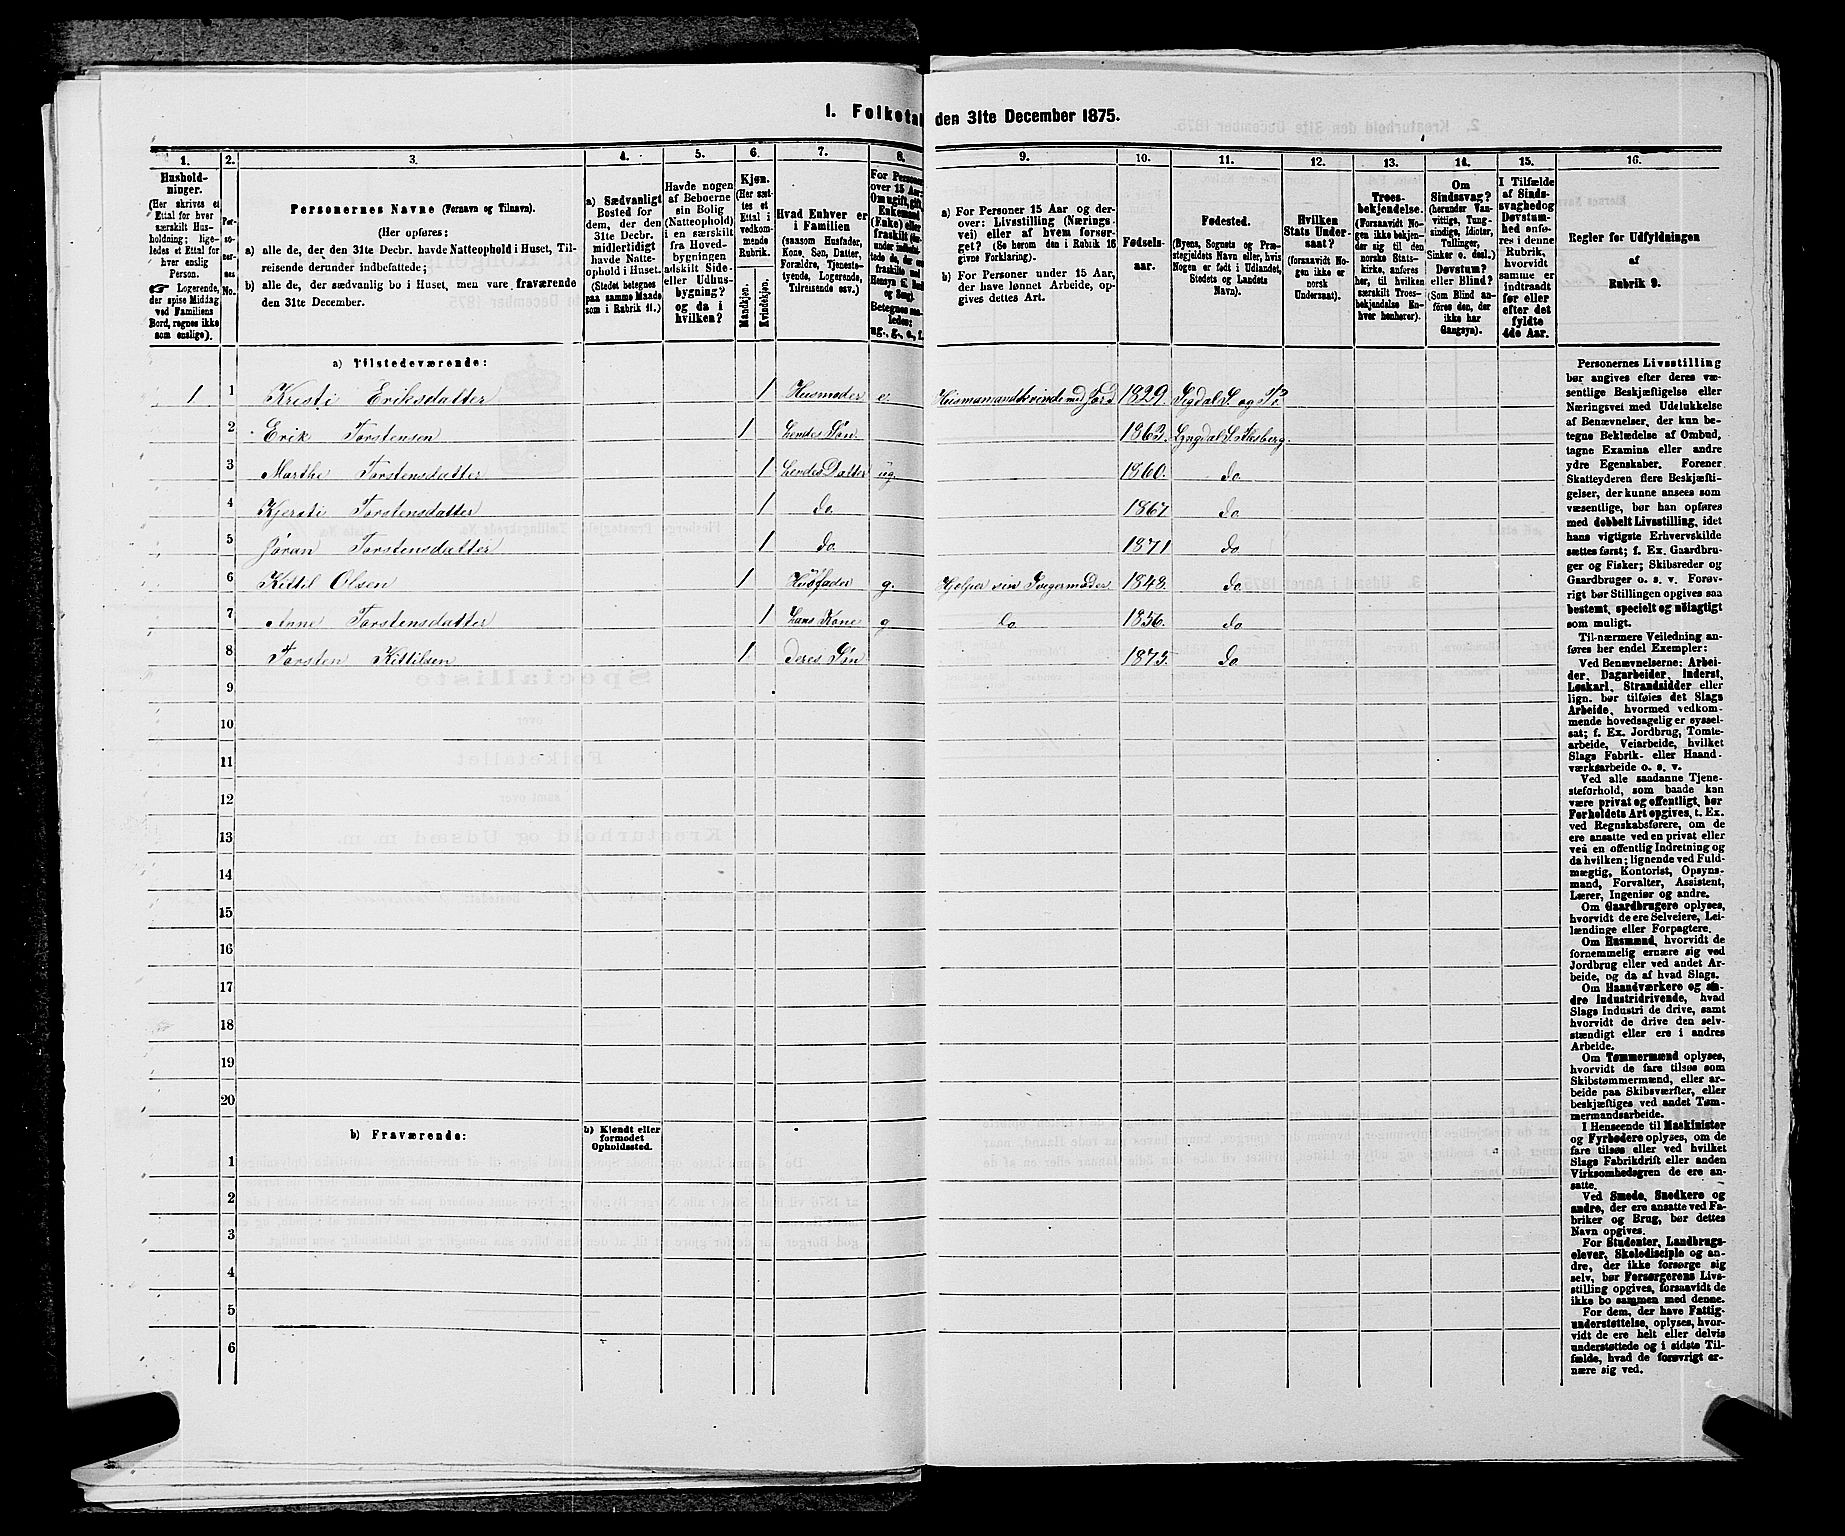 1. Folketal den 31te December 1875.
1. 2. 3. 4. 5. 6. 7. 8. 9. 10. 11. 12. 13. 14. 15. 16.
Hushold-
ninger.
(Her skrives et
Ettal for hver
særskilt Hus-
holdning; lige-
ledes et Ettal for
hver enslig
Person.
☞ Logerende,
der spise Middag
ved Familiens
Bord, regnes ikke
som enslige).
Per-
so-
ner-
nes
No.
Personernes Navne (Fornavn og Tilnavn).
(Her opføres:
a) alle de, der den 31te Decbr. havde Natteophold i Huset, Til-
reisende derunder indbefattede;
b) alle de, der sædvanlig bo i Huset, men vare fraværende
den 31te December.
a) Sædvanligt
Bosted for
dem, der den
31te Decbr.
midlertidigt
havde Natte-
ophold i Huset.
(Stedet betegnes
paa samme Maade
som i Rubrik 11.)
Havde nogen
af Beboerne
sin Bolig
(Natteophold)
i en særskilt
fra Hoved-
bygningen
adskilt Side-
eller Udhus-
bygning?
og da i
hvilken?
Kjøn.
(Her sæt-
tes et
Ettal i
vedkom-
mende
Rubrik.
Mandkjøn.
Kvindekjøn.
Hvad Enhver er
i Familien
(saasom Husfader,
Kone, Søn, Datter,
Forældre, Tjeneste-
tyende, Logerende,
Tilreisende osv.)
For Personer
over 15 Aar:
Om ugift, gift,
Enkemand
(Enke) eller
fraskilt
Betegnes saa-
ledes:
ug., g., e., f.
a) For Personer 15 Aar og der-
over: Livsstilling (Nærings-
vei) eller af hvem forsør-
get? (Se herom den i Rubrik 16
givne Forklaring).
b) For Personer under 15 Aar,
der have lønnet Arbeide, op-
gives dettes Art.
Fødsels-
aar.
Fødested.
(Byens, Sognets og Præ-
stegjeldets Navn eller, hvis
Nogen er født i Udlandet,
Stedets og Landets
Navn).
Hvilken
Stats Under-
saat?
(foraavidt No-
gen ikke er
norsk
Undersaat).
Troes-
bekjendelse.
(Forsaavidt Nogen
ikke bekjen-
der sig til den
norske Stats-
kirke, anføres
her, til hvilken
særskilt Troes-
bekjendelse En-
hver henhører).
Om
Sindssvag?
(herunder Van-
vittige, Tung-
sindige, Idioter,
Tullinger,
Sinker o. desl.)
Døvstum?
eller Blind?
(Som Blind an-
føres den, der
ikke har
Gangsyn).
I Tilfælde
af Sinds-
svaghed og
Døvstum-
hed anfø-
res i denne
Rubrik,
hvorvidt
samme er
indtraadt
før eller
efter det
fyldte
4de Aar.
Regler for Udfyldningen
af
Rubrik 9.
a) Tilstedeværende:
1 1 Kristi Eriksdatter 1 Husmoder e. Husmamandskvinde med Jord 1829. Sigdal S. og P.
2 Erik Torstensen 1 hendes Søn 1863. Lyngdal S. Flesberg.
3 Marthe Torstensdatter 1 hendes Datter ug. 1860. do
4 Kjersti Torstensdatter 1 do 1867 do
5 Jøran Torstensdatter 1 do. 1871 do
6 Kittil Olsen 1 Husfader g. Hjælper sin Svigermoder. 1848. do.
7 Anne Torstensdatter 1 hans Kone g do. 1856. do
8 Torsten Kittilsen 1 deres Søn 1873. do
9
10
11
12
13
14
15
16
17
18
19
20
b) Fraværende:
b) Kjendt eller
formodet
Opholdssted.
1
2
3
4
5
6
Personernes Livsstilling
bør angives efter deres væ-
sentlige Beskjæftigelse eller
Næringsvei med Udelukkelse
af Benævnelser, der kun be-
tegne Beklædelse af Ombud,
tagne Examina eller andre
ydre Egenskaber. Forener
Skatteyderen flere Beskjæfti-
gelser, der kunne ansees som
væsentlige, bør han opføres
med dobbelt Livsstilling, idet
hans vigtigste Erhvervskilde
sættes først; f. Ex. Gaardbru-
ger og Fisker; Skibsreder og
Gaardbruger o. s. v. Forøv-
rigt bør Stillingen opgives saa
bestemt, specielt og nøiagtigt
som muligt.
Til nærmere Veiledning an-
føres her endel Exempler:
Ved Benævnelserne: Arbei-
der, Dagarbeider, Inderst,
Løskarl, Strandsidder eller
lign. bør tilføies det Slags
Arbeide, hvormed vedkom-
mende hovedsagelig er syssel-
sat; f. Ex. Jordbrug, Tomte-
arbeide, Veiarbeide, hvilket
Slags Fabrik- eller Haand-
værksarbeide o. s. v.
Ved alle saadanne Tjene-
steforhold, som baade kan
være privat og offentligt, bør
Forholdets Art opgives, t. Ex.
ved Regnskabsførere, om de
ere ansatte ved en privat eller
ved en offentlig Indretning og
da hvilken; lignende ved Fuld-
mægtig, Kontorist, Opsyns-
mand, Forvalter, Assistent,
Lærer, Ingeniør og andre.
Om Gaardbrugere oplyses,
hvorvidt de ere Selveiere, Lei-
lændinge eller Forpagtere.
Om Husmænd, hvorvidt de
fornemmelig ernære sig ved
Jordbrug eller ved andet Ar-
beide, og da af hvad Slags.
Om Haandværkere og an-
dre Industridrivende, hvad
Slags Industri de drive, samt
hvorvidt de drive den selv-
stændigt eller ere i andres
Arbeide.
Om Tømmermænd oplyses,
hvorvidt de fare tilsøs som
Skibstømmermænd, eller ar-
beide paa Skibsværfter, eller
beskjæftiges ved andet Tøm-
mermandsarbeide.
I Henseende til Maskinister
og Fyrbødere oplyses, om de
fare tilsøs eller ved hvilket
Slags Fabrikdrift eller anden
Virksomhedsgren de ere an-
satte.
Ved Smede, Snedkere og
andre, der ere ansatte ved Fa-
briker og Brug, bør dettes
Navn opgives.
For Studenter, Landbrugs-
elever, Skoledisciple og an-
dre, der ikke forsørge sig
selv, bør Forsørgerens Livs-
stilling opgives, forsaavidt de
ikke bo sammen med denne.
For dem, der have Fattig-
understøttelse, oplyses, hvor-
vidt de ere helt eller delvis
understøttede og i sidste Til-
fælde, hvad de forøvrigt er-
nære sig ved.